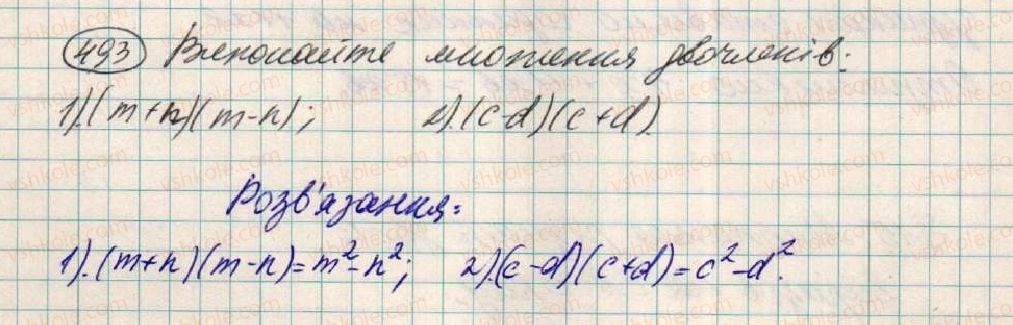 493 Виконайте множення двочленів:
1).(m+n)(m-n); 2).(c-d)(c+d).
Розв'язання:
1).(m+n)(m-n)=m²-n²; 2).(c-d)(c+d)=c²-d².